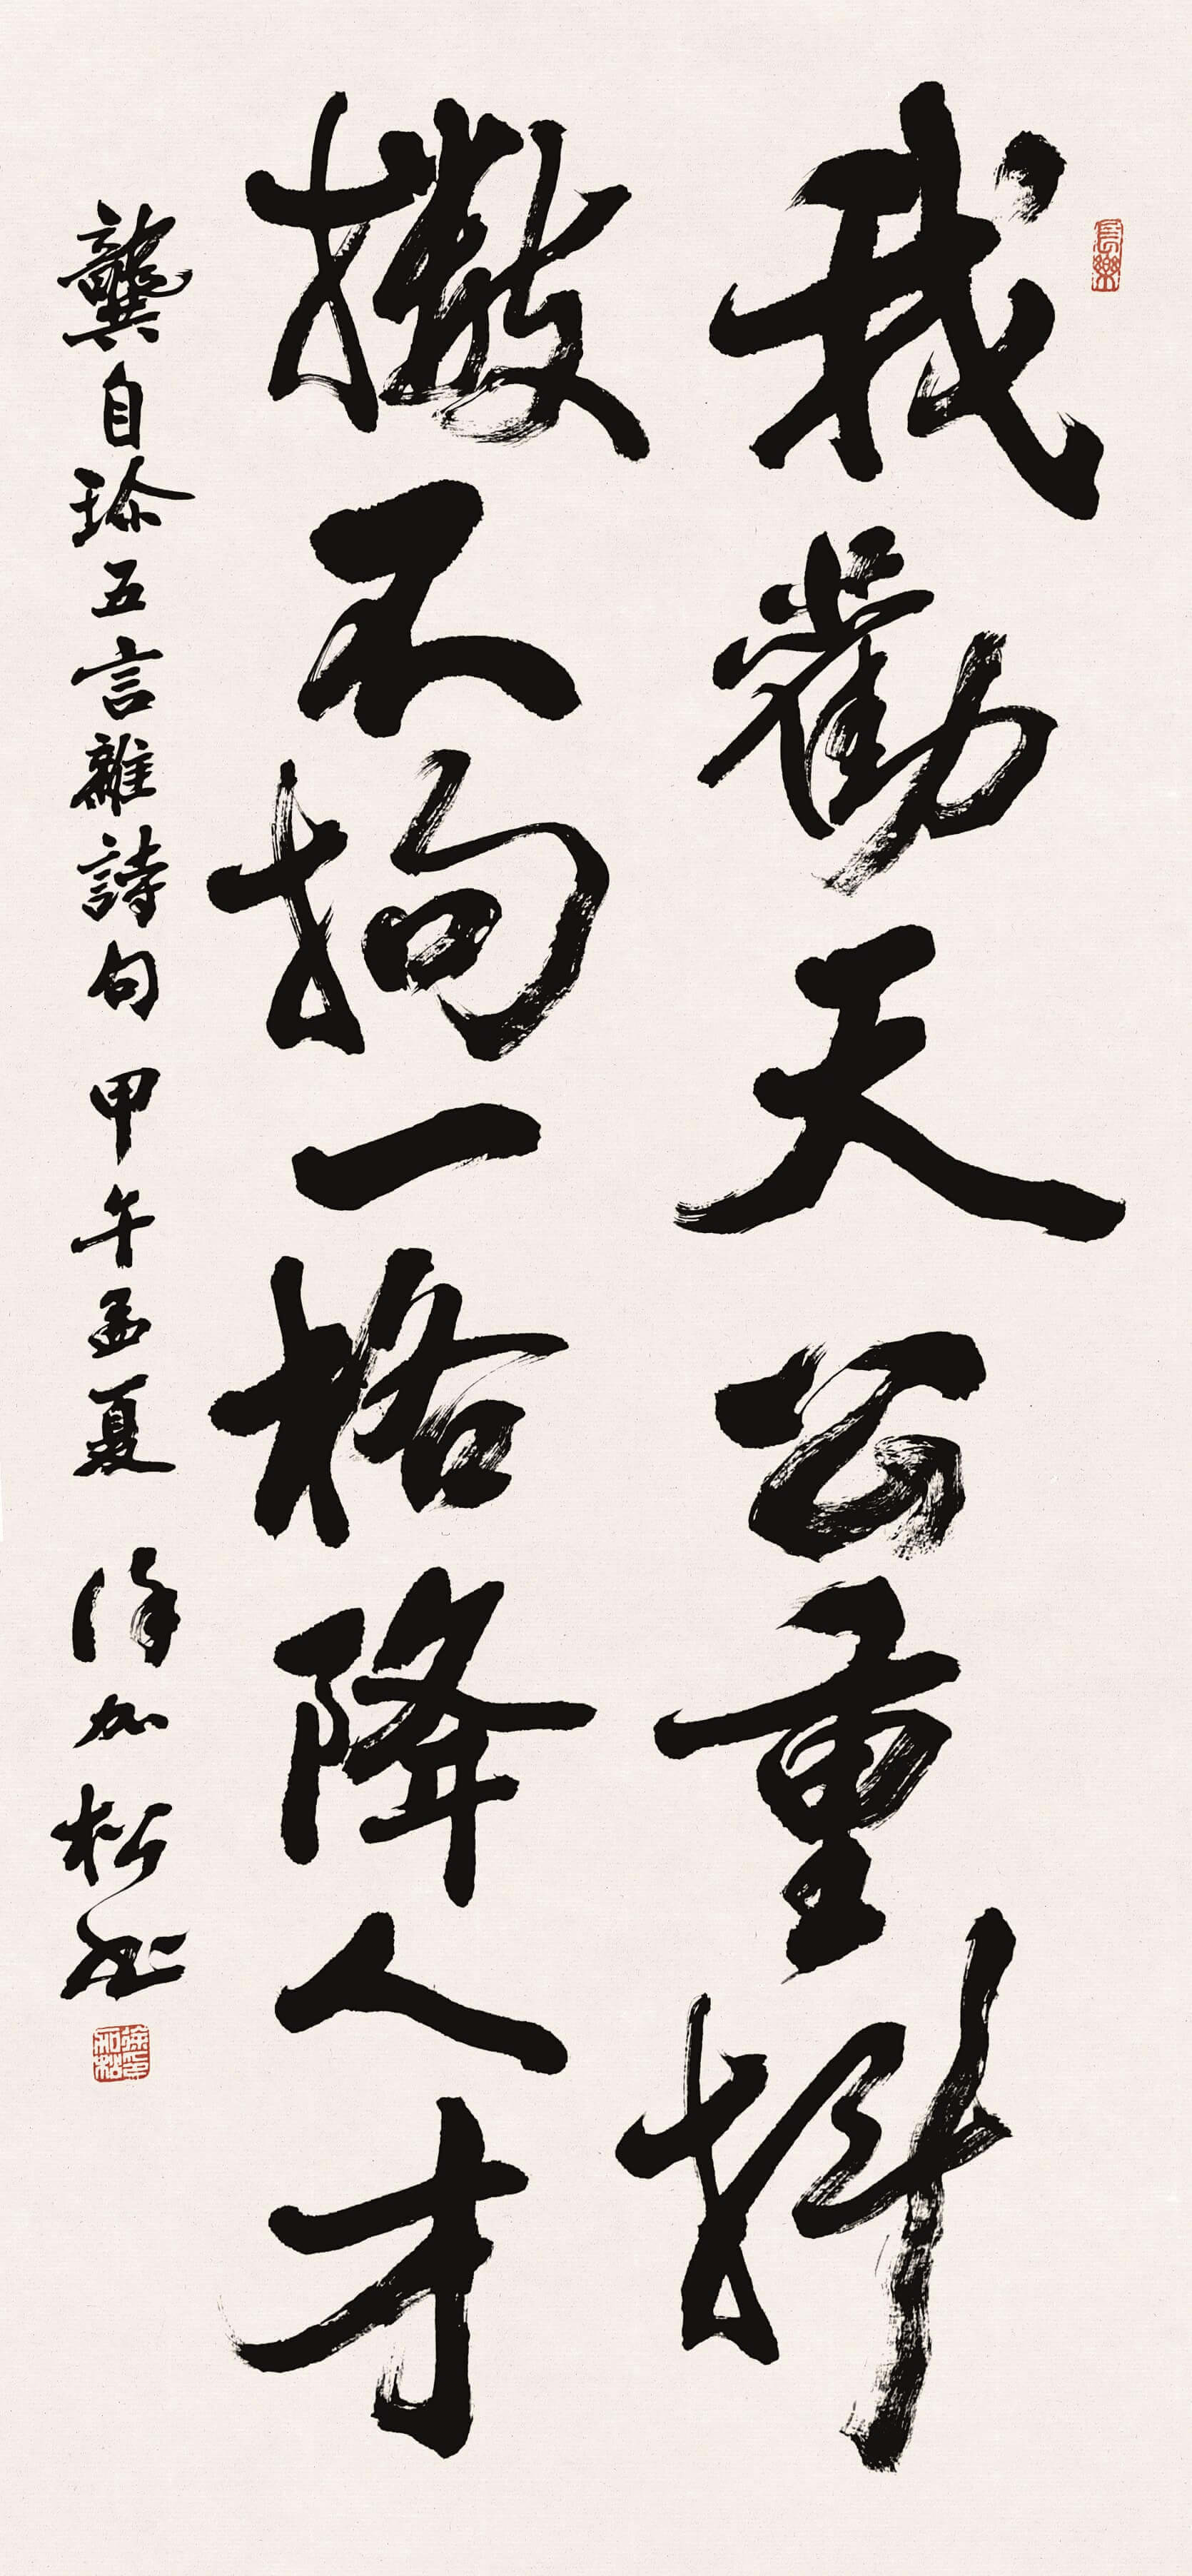 長樂
我勸天公重抖
擻不拘一格降人才
龔自珍五言雜詩句 甲午孟夏 徐加松书